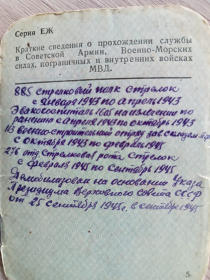 Серия ЕЖ
Краткие сведения о прохождении службы
в Советской Армии, Военно-Морских
силах, пограничных и внутренних войсках
МВД.
885 стрелковый полк стрелок
с января 1943 по апрель 1943
Эвакогоспиталь 1605 на излечении по
ранению с апреля 1943 по октябрь 1943
113 военно-строительный отряд зав складом
с октября 1943 по февраль 1945
276 отд стрелковая рота стрелок
с февраля 1945 по сентябрь 1945
Демобилизован на основании указа
Президиума Верховного Совета СССР
от 25 сентября 1945г. в сентябре 1945
5